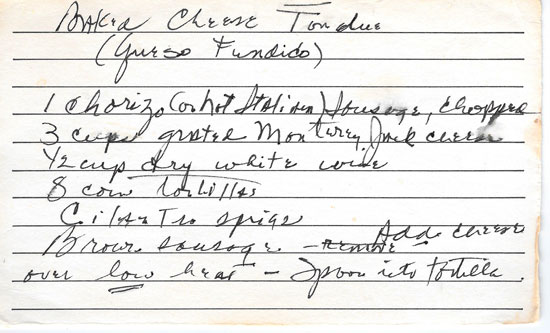 Baked Cheese Fondue
(Queso Fundido)
1 chorizo (or hot Italian) sausage, chopped
3 cups grated Monterey Jack cheese
1/2 cup dry white wine
8 corn tortillas
Cilantro sprigs
Brown sausage - remove Add cheese
over low heat - Spoon into tortilla.